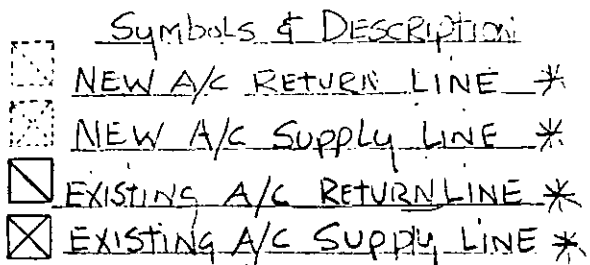 Symbols & DESCRIPTION
NEW A/C RETURN LINE *
NEW A/C SUPPLY LINE *
EXISTING A/C RETURN LINE *
EXISTING A/C SUPPLY LINE *